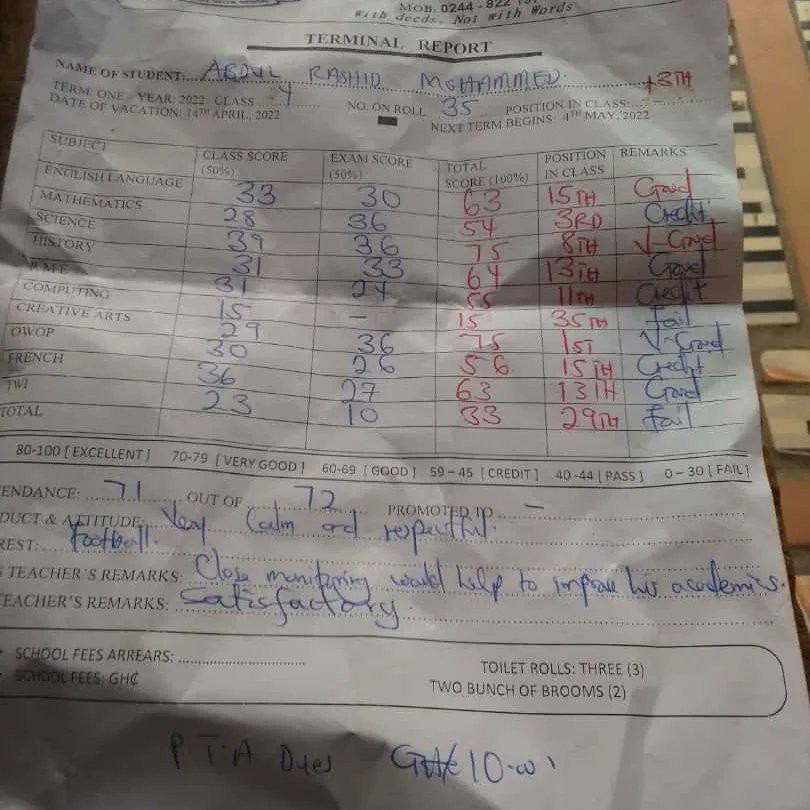 MOB. 0244 - 822
With deeds. Not with Words
TERMINAL REPORT
NAME OF STUDENT: ABDUL RASHID MOHAMMED
TERM: ONE YEAR: 2022 CLASS 4 NO. ON ROLL 35 POSITION IN CLASS: 13TH
DATE OF VACATION: 14TH APRIL, 2022 NEXT TERM BEGINS 4TH MAY, 2022
SUBJECT CLASS SCORE (50%) EXAM SCORE (50%) TOTAL SCORE (100%) POSITION IN CLASS REMARKS
ENGLISH LANGUAGE 33 30 63 15TH Good
MATHEMATICS 28 36 54 3RD Credit
SCIENCE 39 36 75 8TH V-Good
HISTORY 31 33 64 13TH Good
R.M.E 31 24 55 11TH Credit
COMPUTING 15 - 15 35TH Fail
CREATIVE ARTS 29 36 75 1ST V-Good
OWOP 30 26 56 15TH Credit
FRENCH 36 27 63 13TH Good
TWI 23 10 33 29TH Fail
TOTAL
80-100 [EXCELLENT] 70-79 [VERY GOOD] 60-69 [GOOD] 59-45 [CREDIT] 40-44 [PASS] 0-30 [FAIL]
ENDANCE: 71 OUT OF 72 PROMOTED TO -
DUCT & ATTITUDE: Very Calm and respectful.
REST: Football.
TEACHER'S REMARKS: Close monitoring would help to improve his academics.
TEACHER'S REMARKS: Satisfactory.
SCHOOL FEES ARREARS: TOILET ROLLS: THREE (3)
SCHOOL FEES: GH₵ TWO BUNCH OF BROOMS (2)
P.T.A Dues GH₵ 10.00